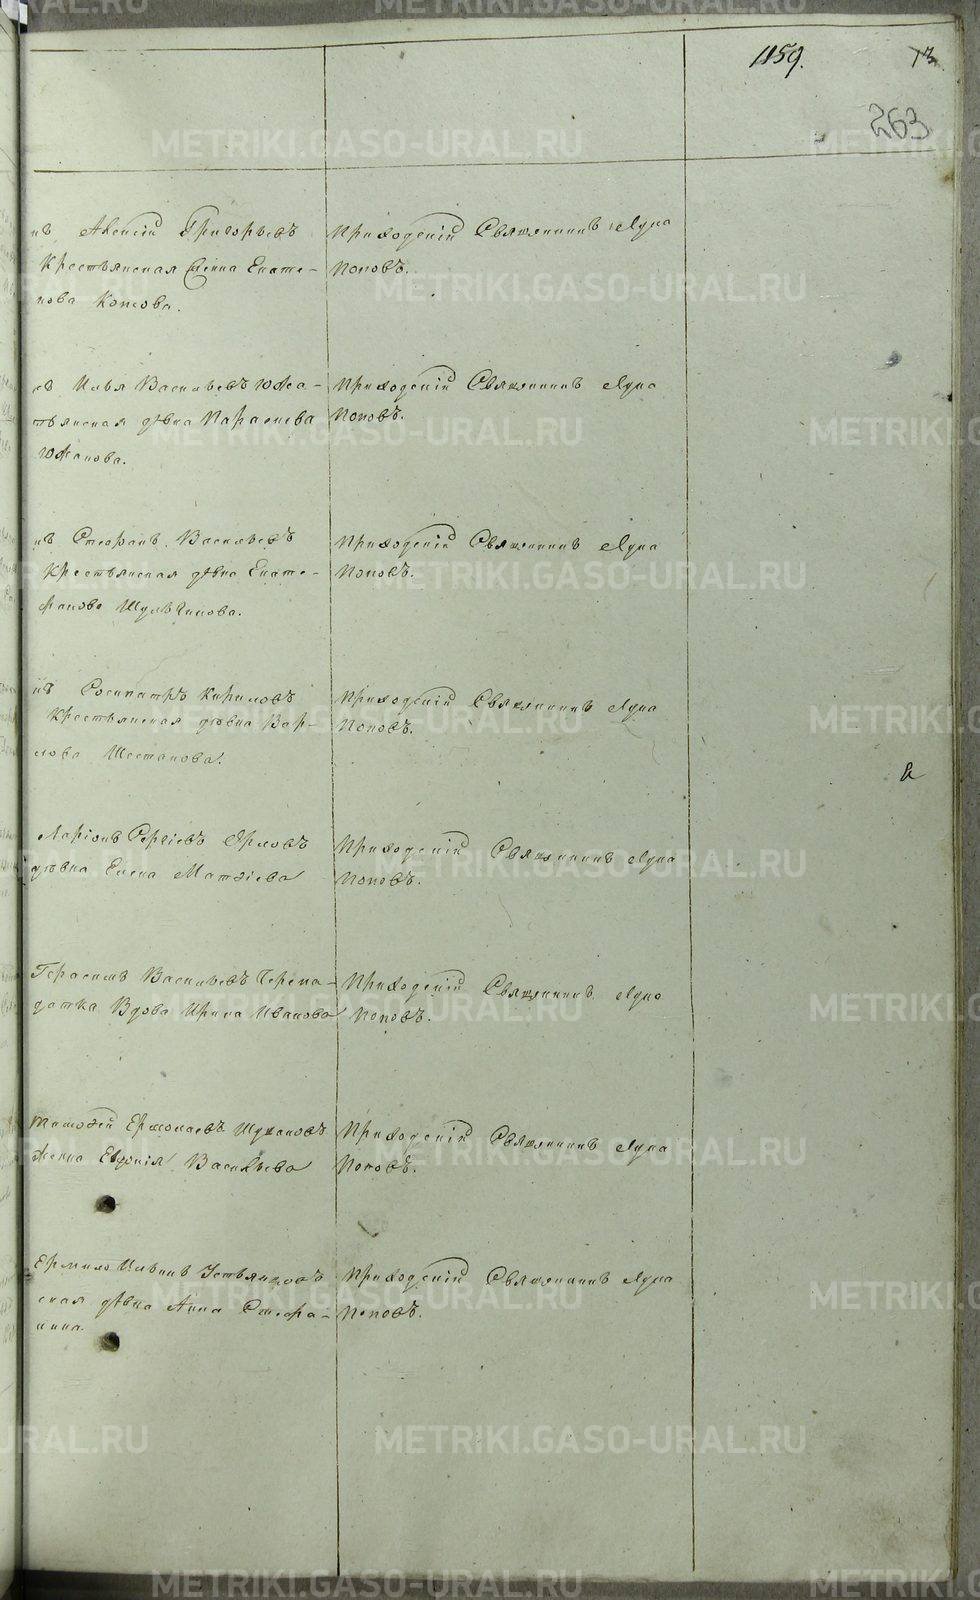 1159.
13
263
нъ Алексій Григорьевъ
Крестьянская Жена Екате-
нова Котова.
Приходскій Священникъ Лука
Поповъ.
въ Илья Васильевъ Южа-
тьянская дѣвка Параскева
Южакова.
Приходскій Священникъ Лука
Поповъ.
нъ Стефанъ Васильевъ
Крестьянская дѣвка Екате-
фанова
Приходскій Священникъ Лука
Поповъ.
нъ Сосипатръ Кириловъ
Крестьянская дѣвка Вар-
лова Шестакова.
Приходскій Священникъ Лука
Поповъ.
Ларіонъ Сергіевъ
дѣвка Елена Матѳіева
Приходскій Священникъ Лука
Поповъ.
Герасимъ Васильевъ Черепа-
датка Вдова Ирина Иванова
Приходскій Священникъ Лука
Поповъ.
Тимоѳей Ермолаевъ
Женка Евдокія Васильева
Приходскій Священникъ Лука
Поповъ.
Ермило Ильинъ Устьянцовъ
ская дѣвка Анна Стефа-
нина.
Приходскій Священникъ Лука
Поповъ.
METRIKI.GASO-URAL.RU